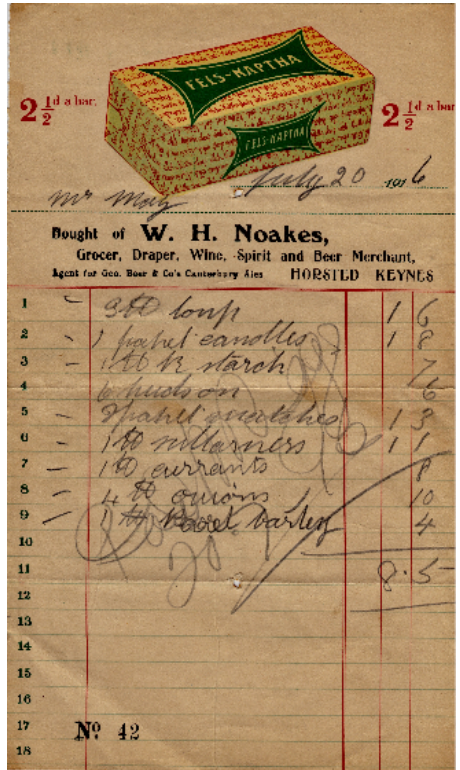 FELS-NAPTHA
FELS-NAPTHA
2 1/2 d a bar.
2 1/2 d a bar
July 20 1916
Mr
Bought of W. H. Noakes,
Grocer, Draper, Wine, Spirit and Beer Merchant,
Agent for Geo. Beer & Co's Canterbury Ales HORSTED KEYNES
1 - 3 lb lump 1 6
2 - 1 packet candles 1 8
3 - 1 lb R starch 7
4 6 hudson 6
5 - 2 packet matches 1 3
6 - 1 lb 1 1
7 - 1 lb currants 8
8 - 4 lb onions 10
9 - 1 lb Pearl barley 4
10
11 8.5
12
13
14
15
16
17 No 42
18